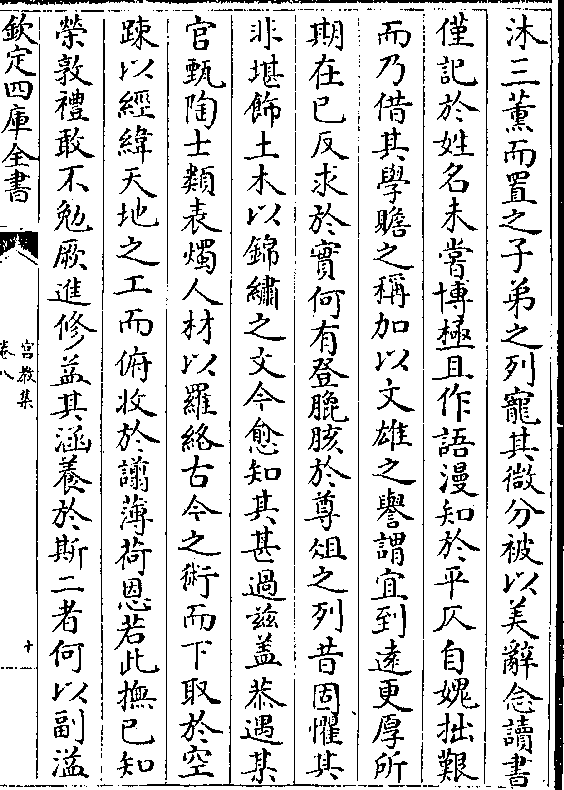 沐三薰而置之子弟之列寵其微分被以美辭念讀書
僅記於姓名未嘗博極且作語漫知於平仄自媿拙艱
而乃借其學贍之稱加以文雄之譽謂宜到逺更厚所
期在已反求於實何有登臘胲於尊俎之列昔固懼其
非堪飾土木以錦繡之文今愈知其甚過兹盖恭遇某
官甄陶士類表燭人材以羅絡古今之術而下取於空
踈以經緯天地之工而俯收於譾薄荷恩若此撫已知
榮敦禮敢不勉厥進修益其涵養於斯二者何以副溢
欽定四庫全書
宫教集
卷八
十